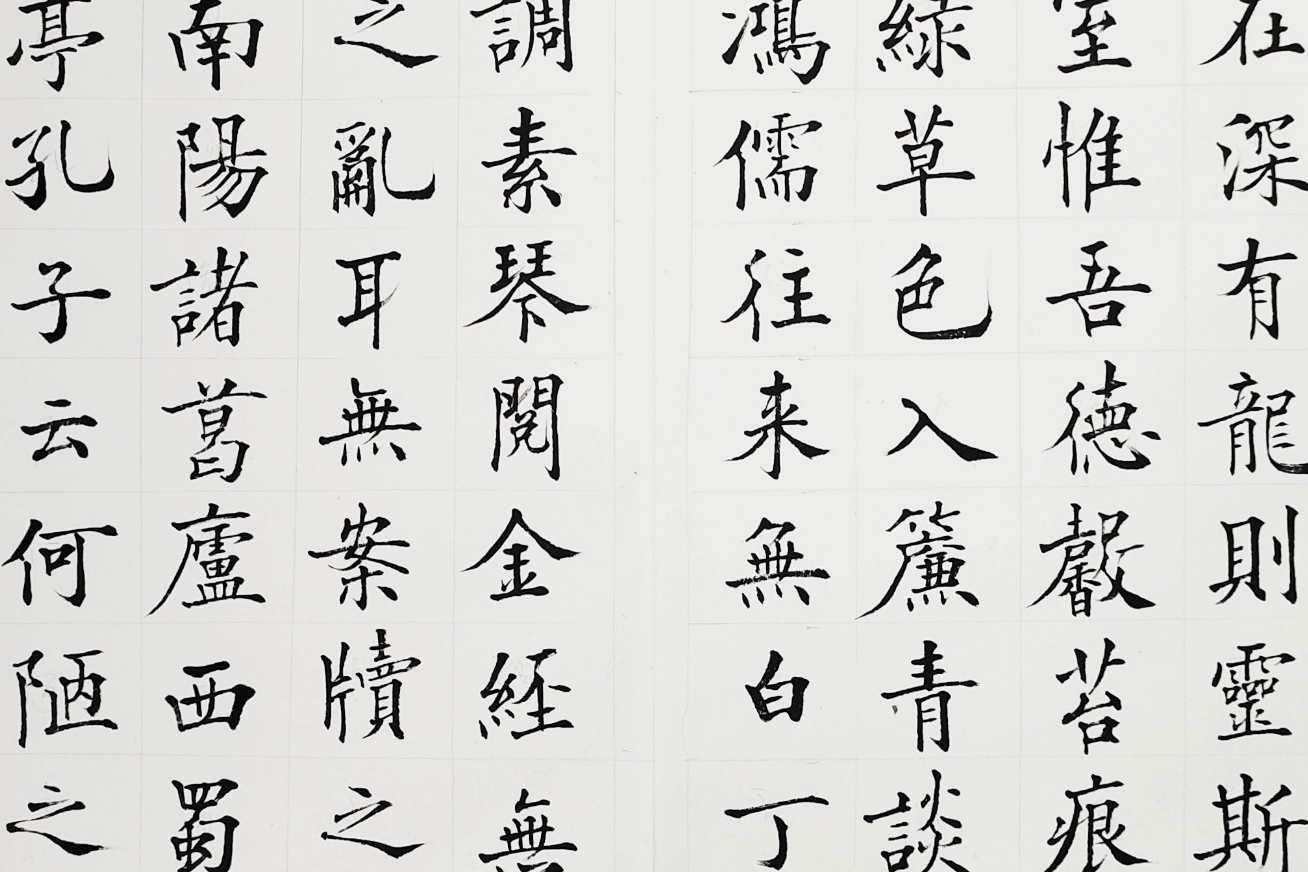 在深有龍則靈斯
室惟吾德馨苔痕
綠草色入簾青談
鴻儒往来無白丁
調素琴閱金經無
之亂耳無案牘之
南陽諸葛廬西蜀
亭孔子云何陋之